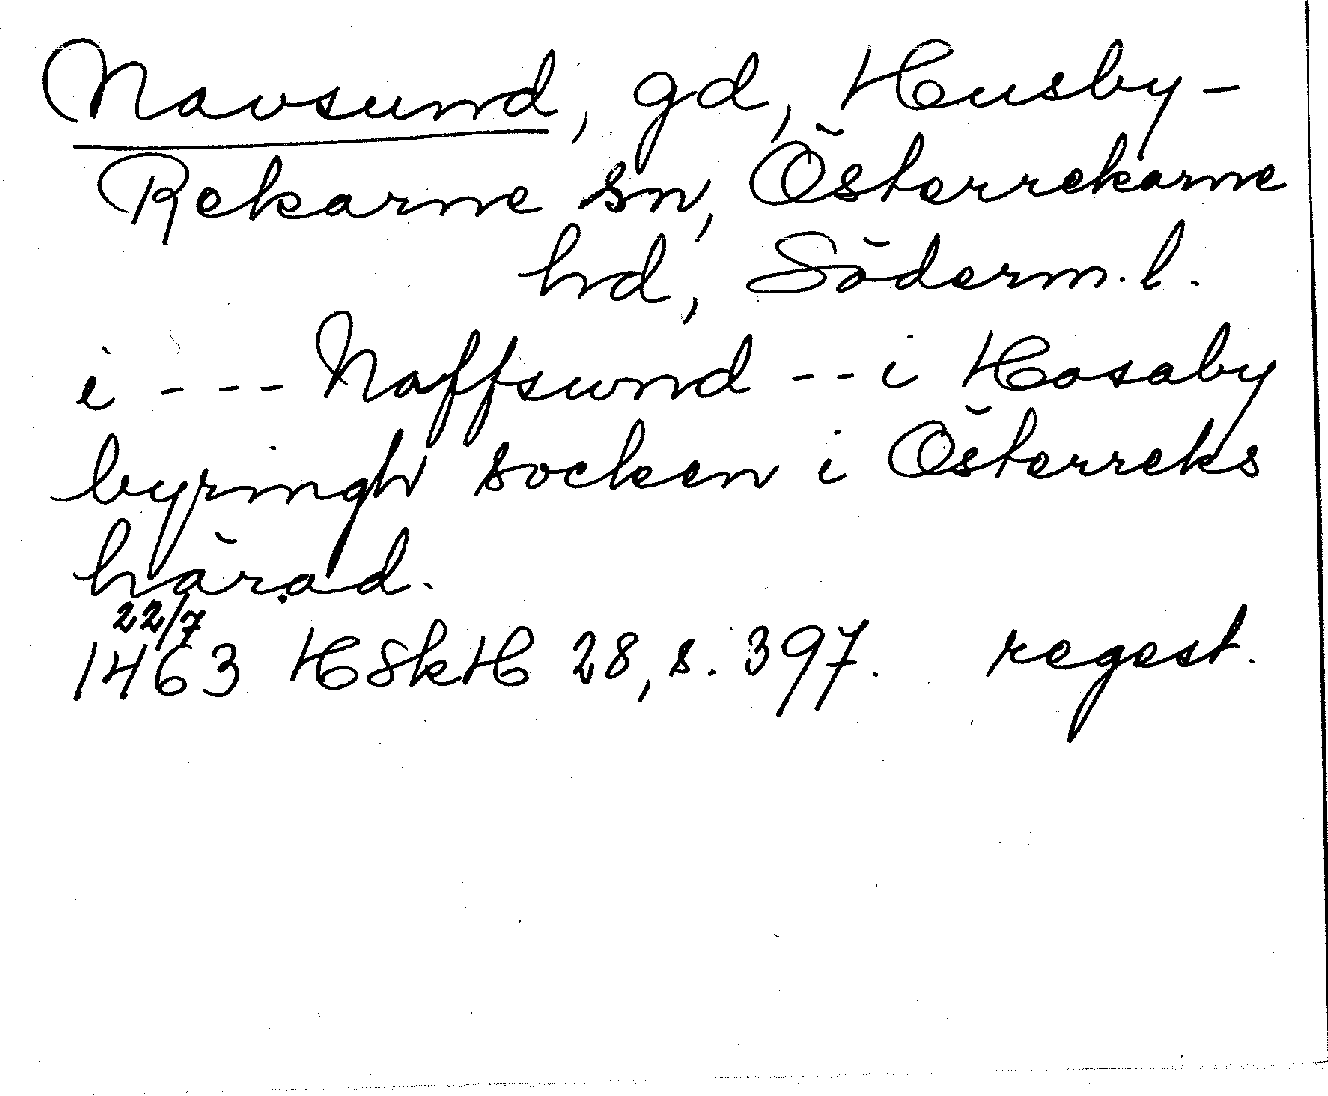 Navsund, gd, Husby-
Rekarne sn, Österrekarne
hd, Söderm.l.
i --- Naffsund -- i Hosaby
byringh socken i Österreks
härad.
22/7
1463 HSkH 28, s. 397. regest.